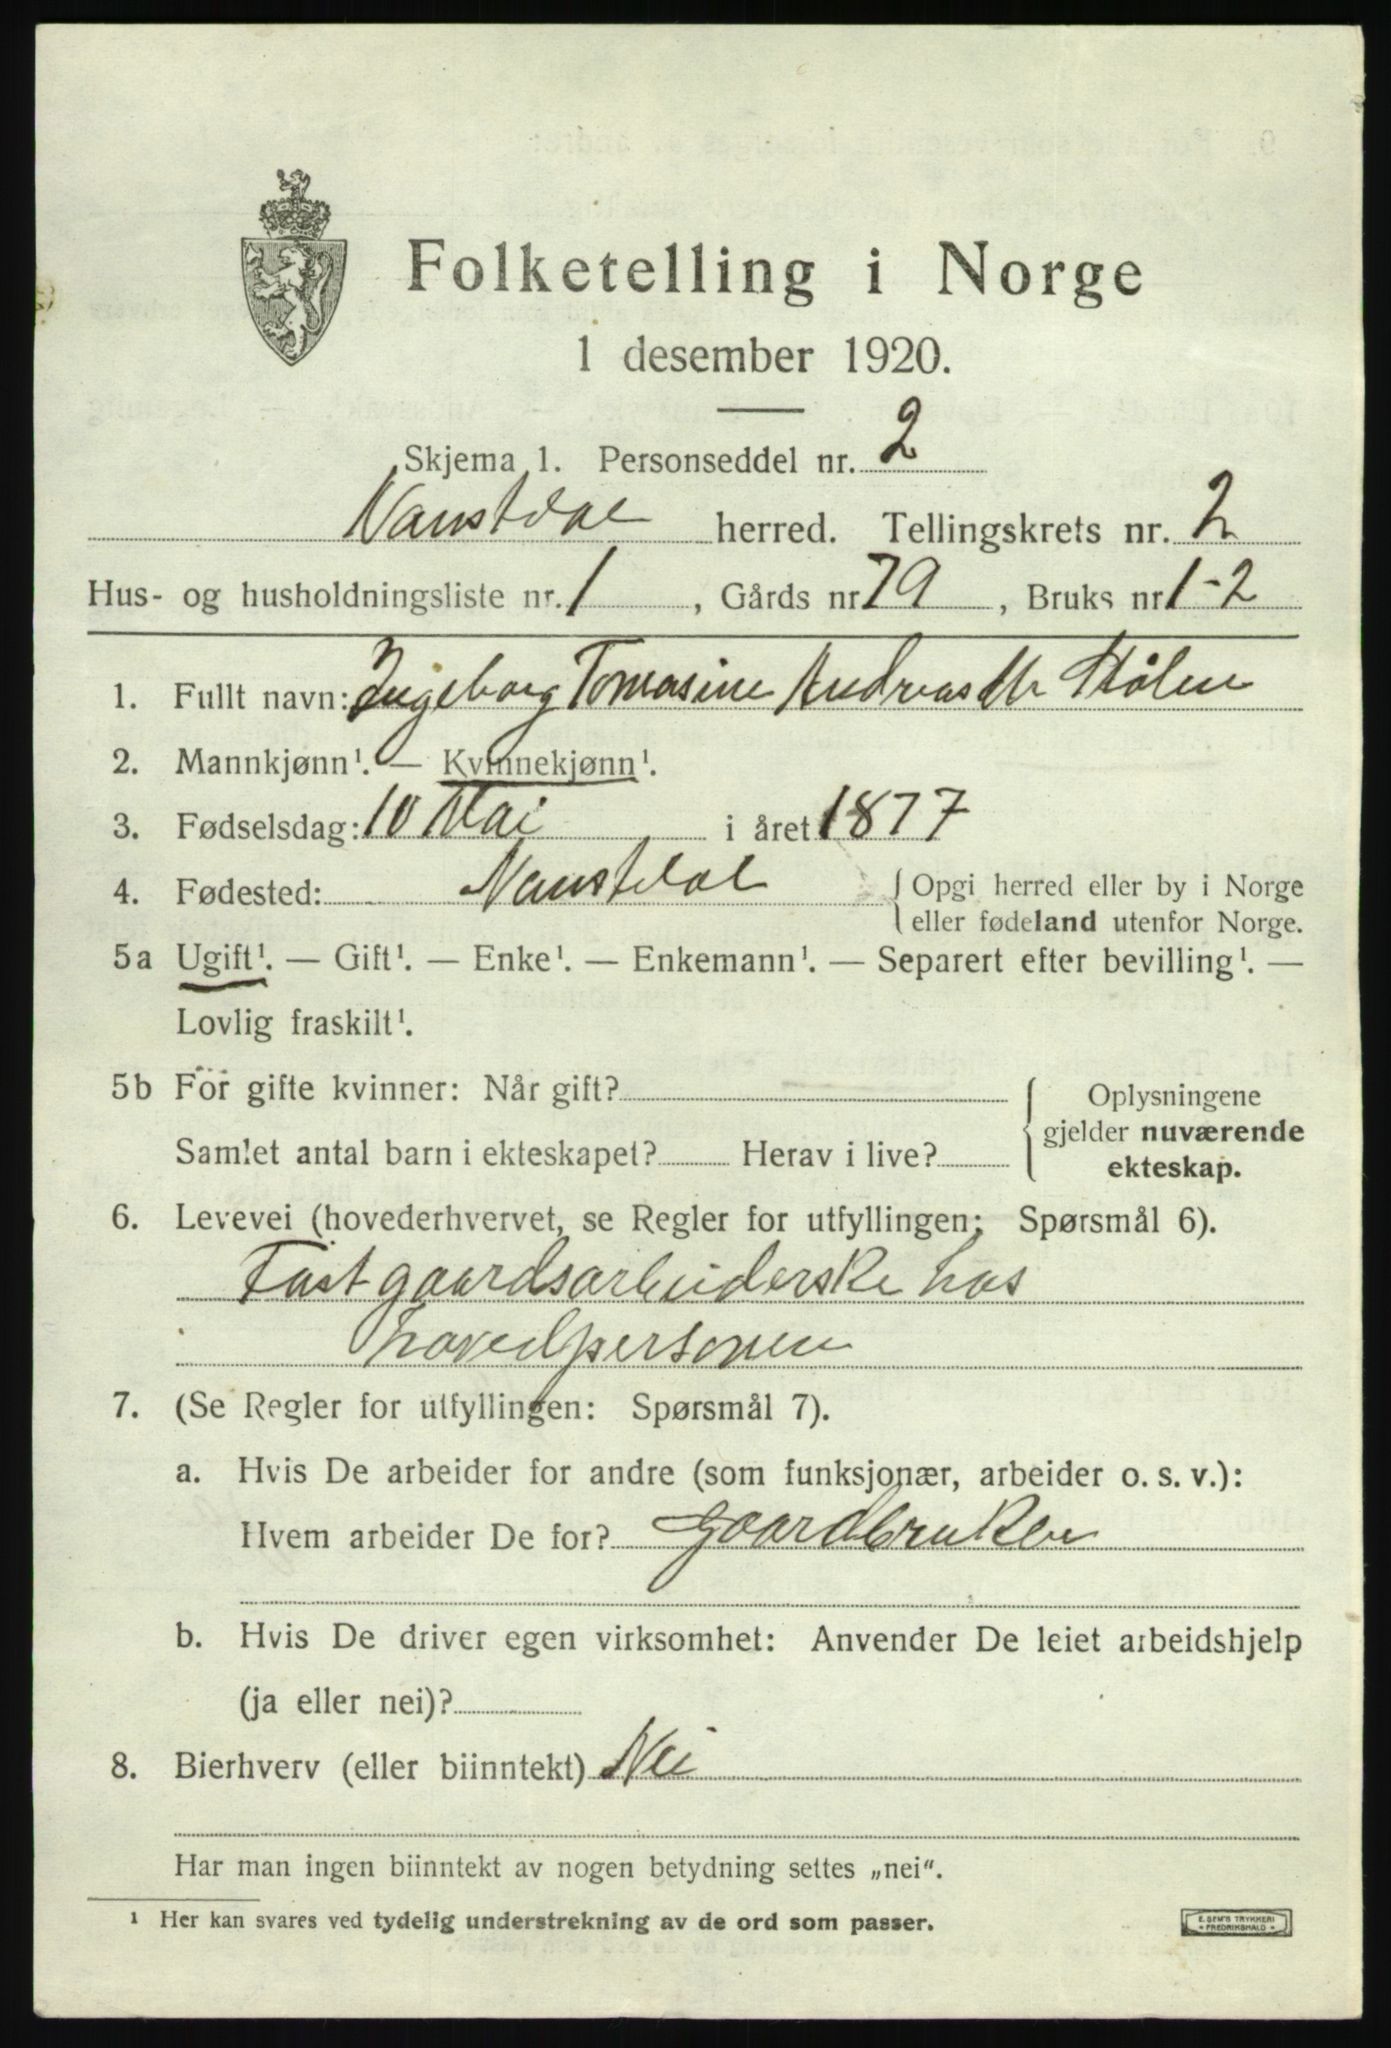 Folketelling i Norge
1 desember 1920.
Skjema 1. Personseddel nr. 2
Naustdal herred. Tellingskrets nr. 2
Hus- og husholdningsliste nr. 1, Gårds nr 79, Bruks nr 1-2
1. Fullt navn: Ingeborg Tomasine Andreasdtr Stølen
2. Mannkjønn¹. — Kvinnekjønn¹.
3. Fødselsdag: 10 Mai i året 1877
4. Fødested: Naustdal { Opgi herred eller by i Norge
eller fødeland utenfor Norge.
5a Ugift¹. — Gift¹. — Enke¹. — Enkemann¹. — Separert efter bevilling¹. —
Lovlig fraskilt¹.
5b For gifte kvinner: Når gift? { Oplysningene
gjelder nuværende
Samlet antal barn i ekteskapet? Herav i live?
ekteskap.
6. Levevei (hovederhvervet, se Regler for utfyllingen; Spørsmål 6).
Fast gaardsarbeiderske hos
hovedpersonen
7. (Se Regler for utfyllingen: Spørsmål 7).
a. Hvis De arbeider for andre (som funksjonær, arbeider o. s. v.):
Hvem arbeider De for? Gaardbruker
b. Hvis De driver egen virksomhet: Anvender De leiet arbeidshjelp
(ja eller nei)?
8. Bierhverv (eller biinntekt) Nei
Har man ingen biinntekt av nogen betydning settes „nei“.
¹ Her kan svares ved tydelig understrekning av de ord som passer.
E. SEM'S TRYKKERI
FREDRIKSHALD